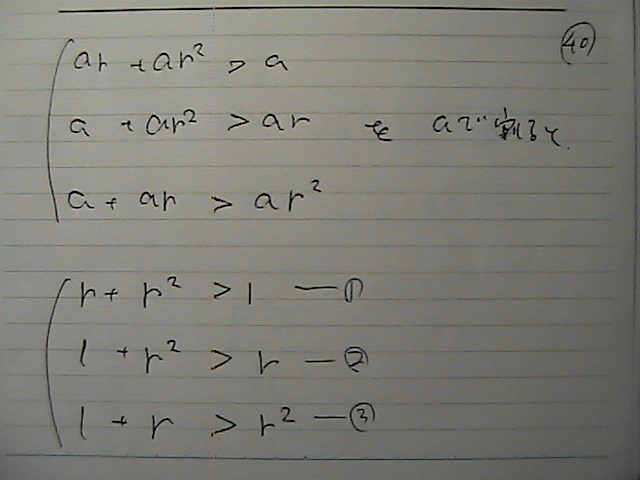 ④⓪
ar + ar² > a
a + ar² > ar を aで割ると
a + ar > ar²
r + r² > 1 — ①
1 + r² > r — ②
1 + r > r² — ③